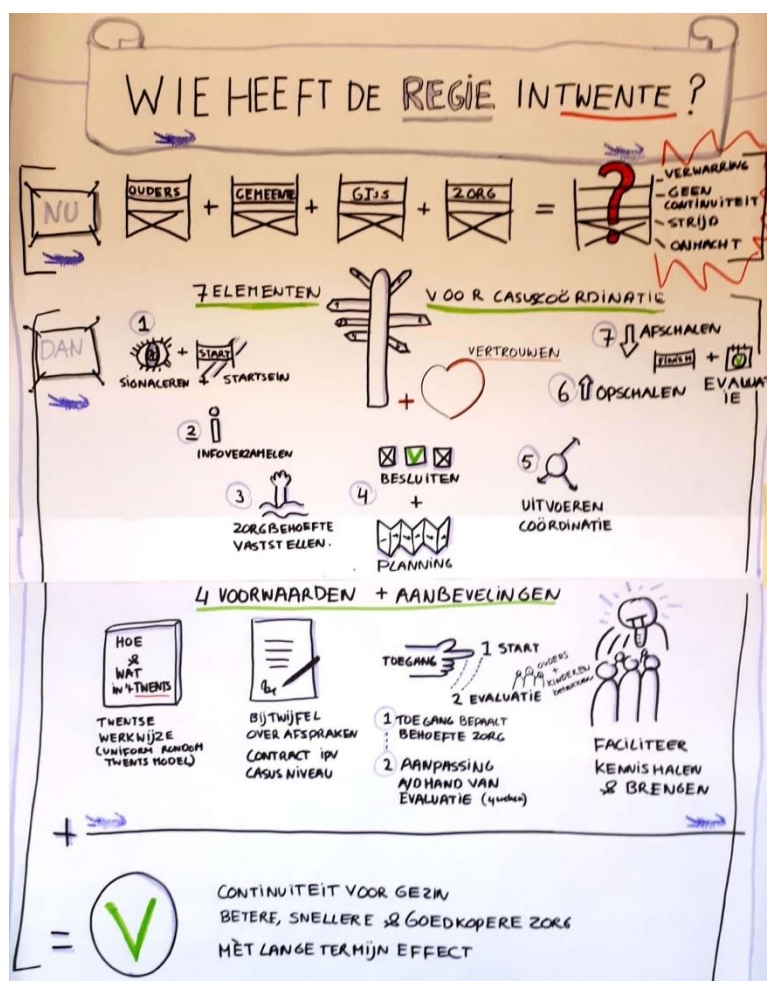 WIE HEEFT DE REGIE IN TWENTE?
NU
OUDERS
+
GEMEENTE
+
GI:s
+
ZORG
=
?
- VERWARRING
- GEEN
CONTINUITEIT
- STRIJD
- ONMACHT
7 ELEMENTEN VOOR CASUSCOÖRDINATIE
DAN
1
SIGNALEREN
+
START
+ STARTSEIN
+
VERTROUWEN
7 AFSCHALEN
FINISH
+
EVALUAT
IE
6 OPSCHALEN
2
INFOVERZAMELEN
3
ZORGBEHOEFTE
VASTSTELLEN.
4
BESLUITEN
+
PLANNING
5
UITVOEREN
COÖRDINATIE
4 VOORWAARDEN + AANBEVELINGEN
HOE
&
WAT
IN 'T TWENTS
TWENTSE
WERKWIJZE
(UNIFORM RONDOM
TWENTS MODEL)
BIJ TWIJFEL
OVER AFSPRAKEN
CONTRACT IPV
CASUS NIVEAU
TOEGANG
1 START
2 EVALUATIE
OUDERS
+
KINDEREN
BETREKKEN
1 TOEGANG BEPAALT
BEHOEFTE ZORG
2 AANPASSING
A/D HAND VAN
EVALUATIE (4 weken)
FACILITEER
KENNIS HALEN
& BRENGEN
+
=
V
CONTINUITEIT VOOR GEZIN
BETERE, SNELLERE & GOEDKOPERE ZORG
MÈT LANGE TERMIJN EFFECT